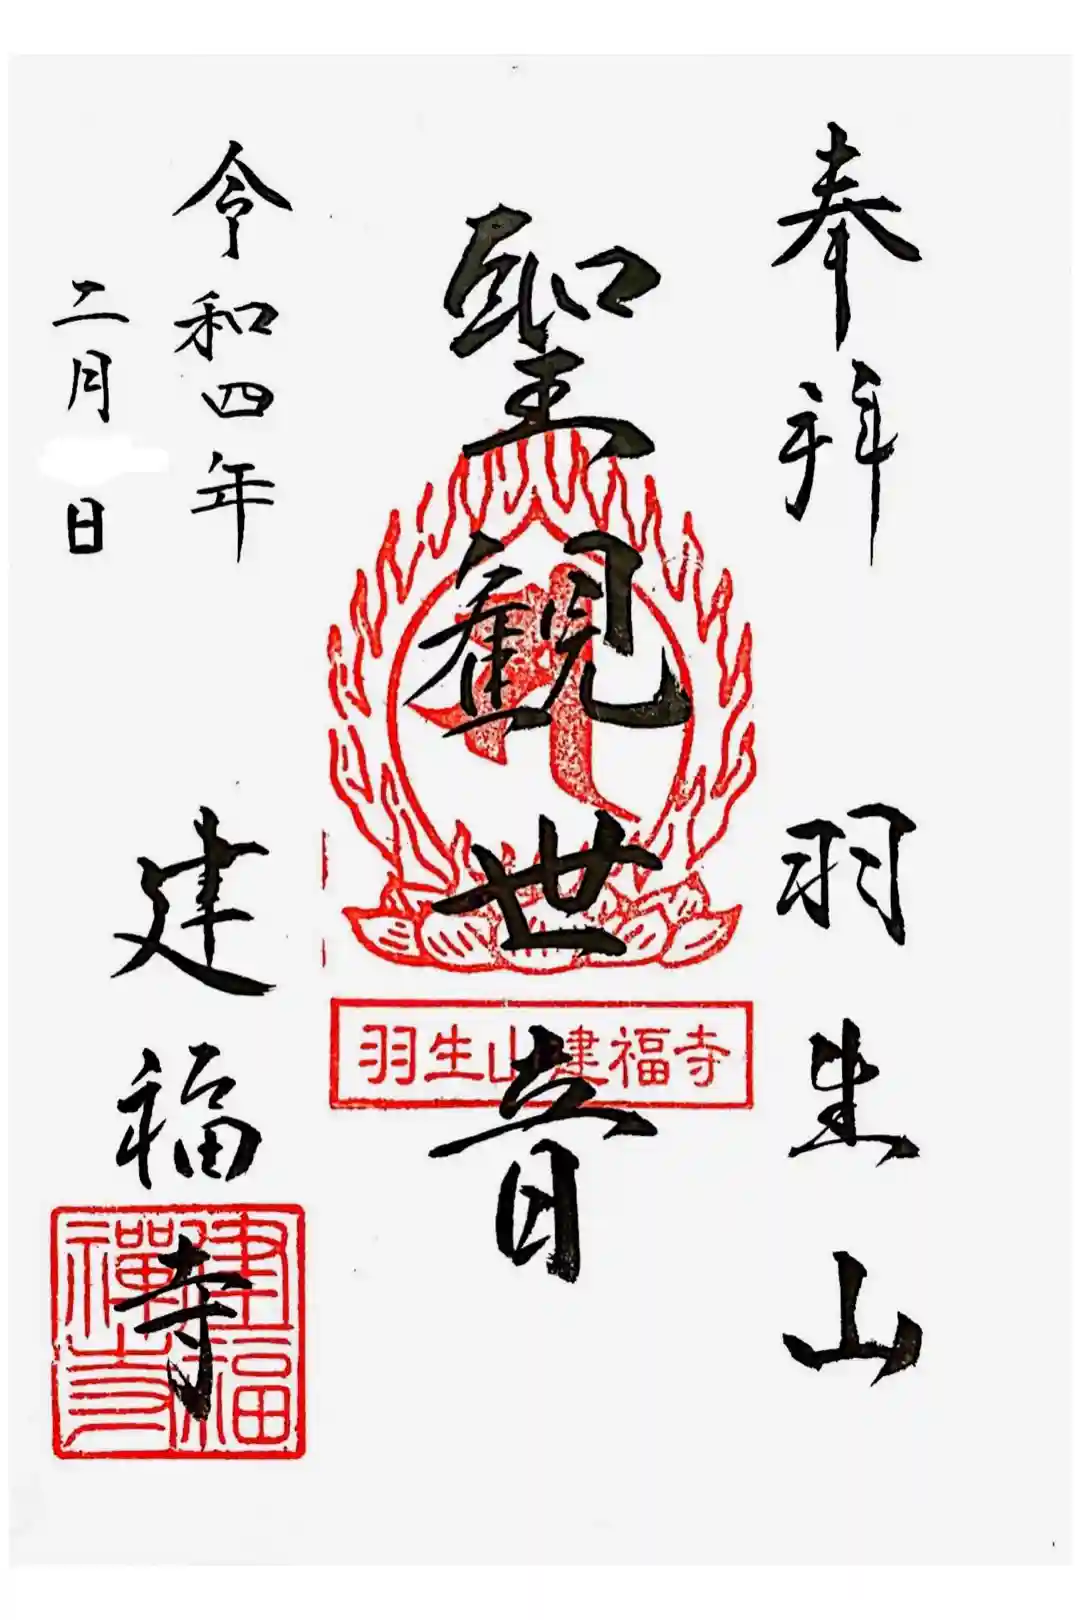 奉拝
羽生山
聖観世音
羽生山建福寺
令和四年
二月
日
建福寺
建福
禅寺